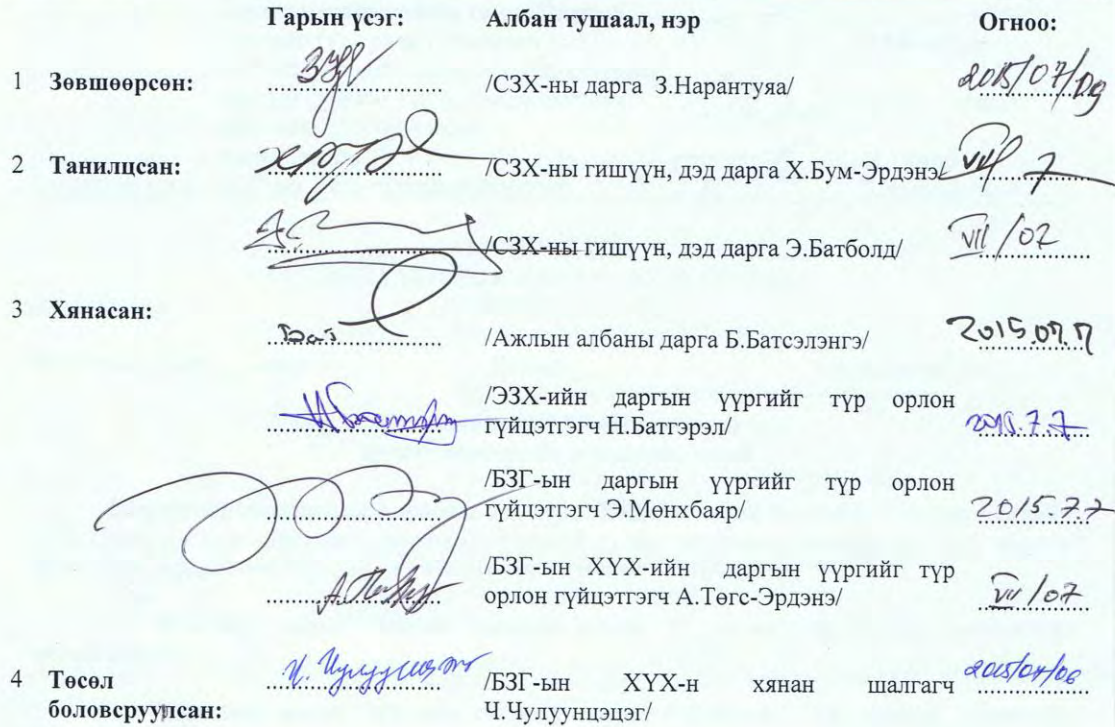 Гарын үсэг: Албан тушаал, нэр Огноо:
1 Зөвшөөрсөн: /СЗХ-ны дарга З.Нарантуяа/ 2015/07/09
2 Танилцсан: /СЗХ-ны гишүүн, дэд дарга Х.Бум-Эрдэнэ/ VII/7
/СЗХ-ны гишүүн, дэд дарга Э.Батболд/ VII/02
3 Хянасан:
Бат /Ажлын албаны дарга Б.Батсэлэнгэ/ 2015.07.7
/ЭЗХ-ийн даргын үүргийг түр орлон
гүйцэтгэгч Н.Батгэрэл/ 2015.7.7
/БЗГ-ын даргын үүргийг түр орлон
гүйцэтгэгч Э.Мөнхбаяр/ 2015.7.7
/БЗГ-ын ХҮХ-ийн даргын үүргийг түр
орлон гүйцэтгэгч А.Төгс-Эрдэнэ/ VII/07
4 Төсөл Ч. Чулуунцэцэг /БЗГ-ын ХҮХ-н хянан шалгагч 2015/07/06
боловсруулсан: Ч.Чулуунцэцэг/